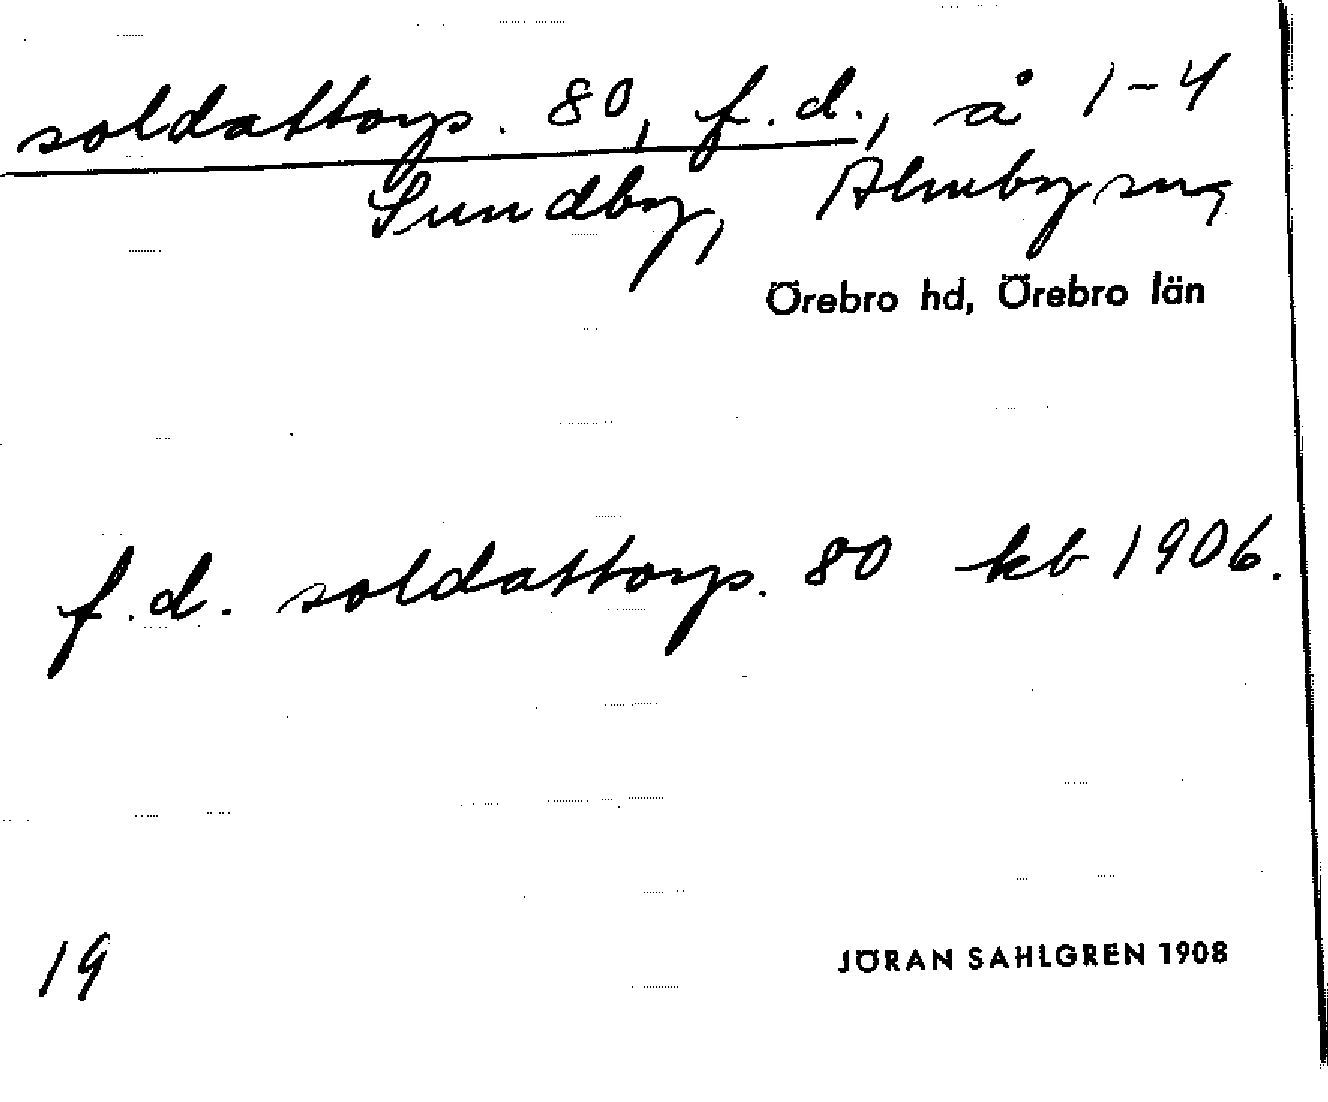 soldattorp. 80, f.d., å 1-4
Sundby, Almby sn,
Örebro hd, Örebro län
f.d. soldattorp. 80 kb 1906.
19
JÖRAN SAHLGREN 1908